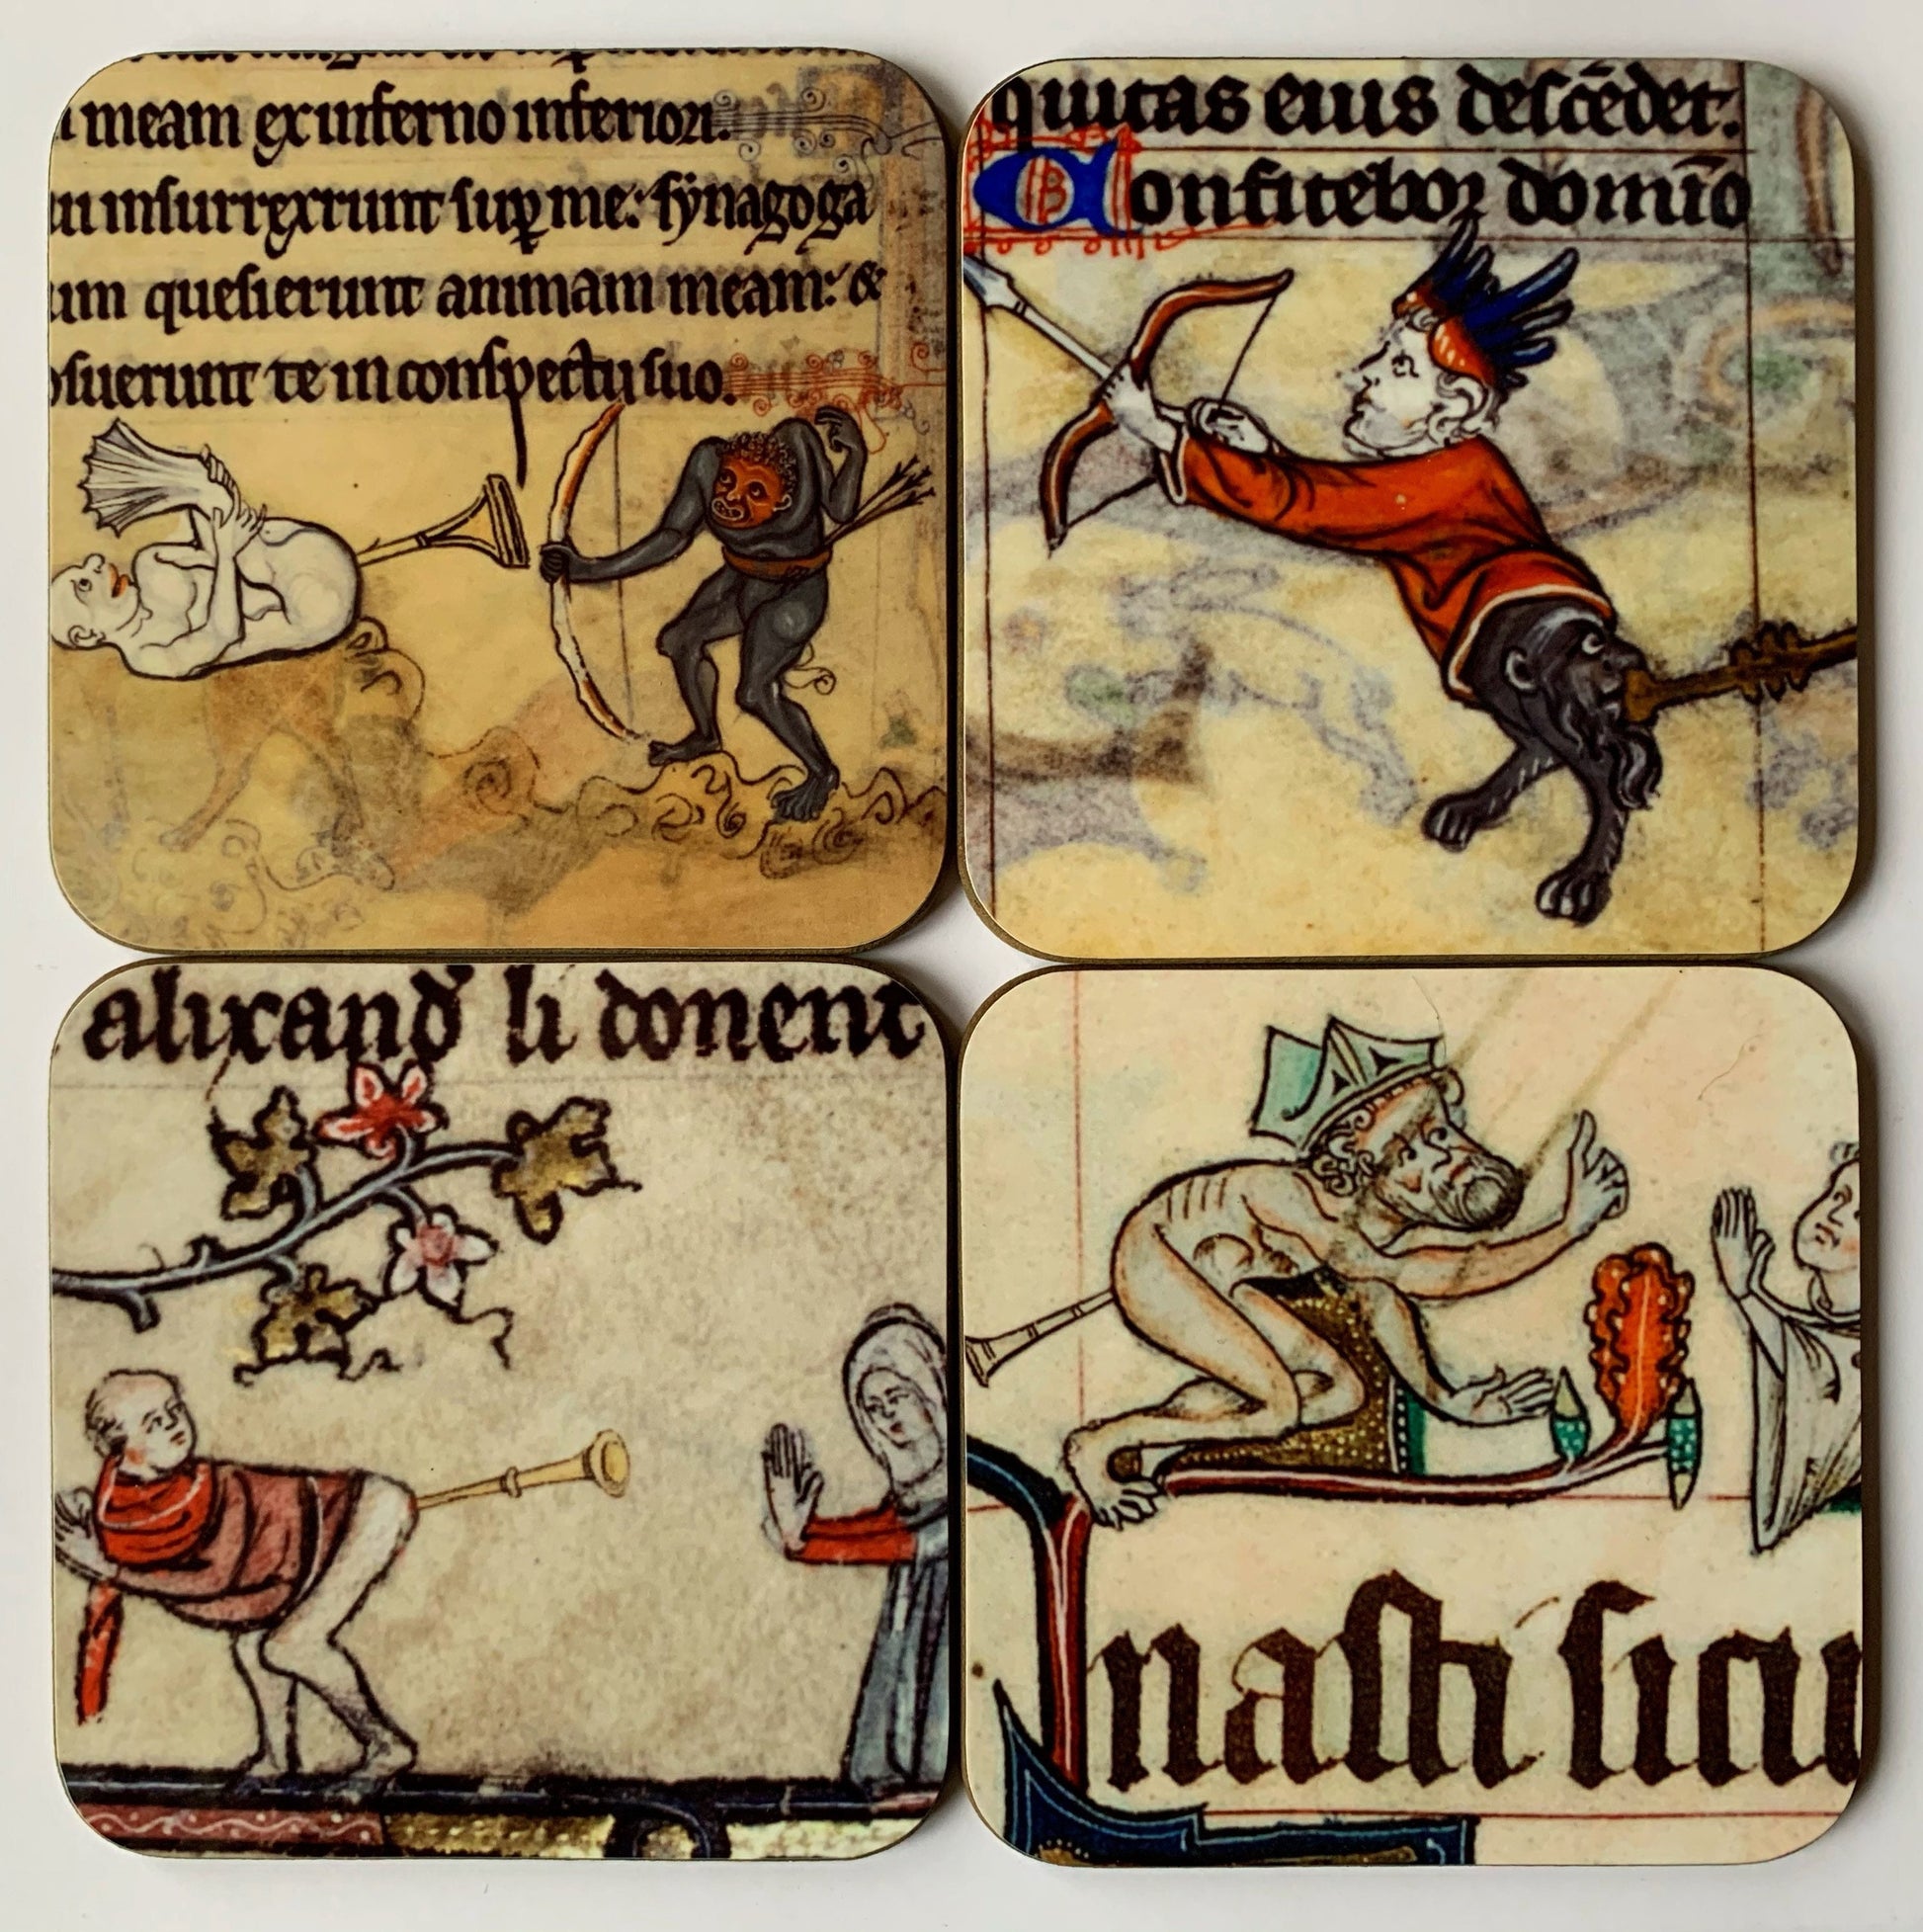 meam ex inferno inferiori.
insurrexerunt sup me: synagoga
um quesierunt animam meam: &
osuerunt te in conspectu suo.
quitas eius descēdet.
Confitebor domīo
alixand' li donent
nasti sicu